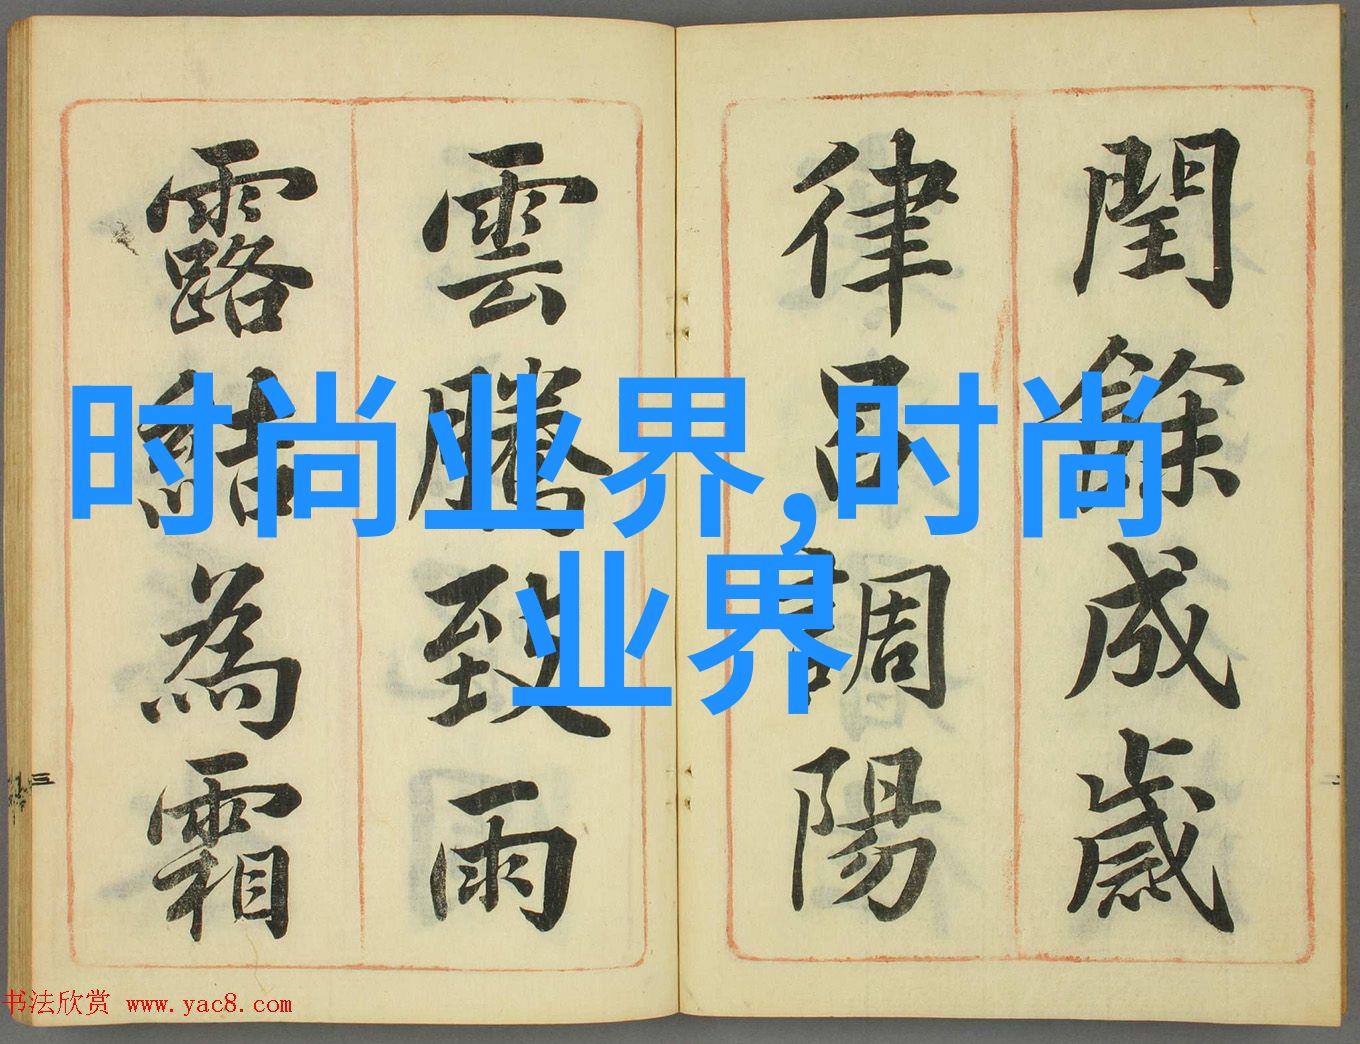 閏餘成歲
律呂調陽
雲騰致雨
露結為霜
时尚业界,时尚
业界
三
二
书法欣赏 www.yac8.com